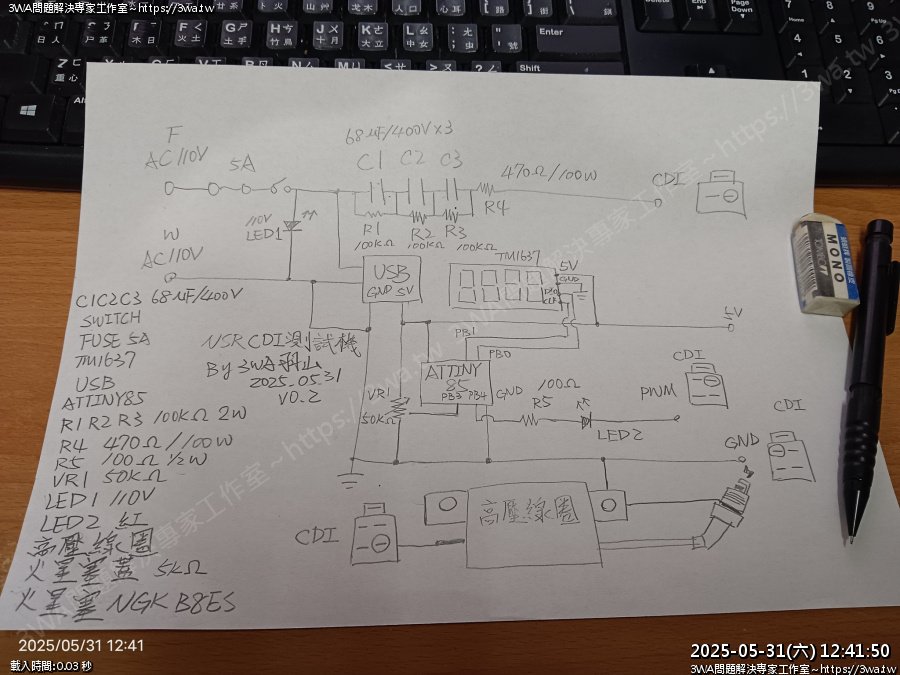 3WA問題解決專家工作室~https://3wa.tw
Enter
Shift
Alt
Delete
End
Page Down
7
Home
8
9
PgUp
4
5
6
1
2
3
F
AC110V
5A
68μF/400V×3
C1 C2 C3
470Ω/100W
R4
CDI
110V
LED1
R1 R2 R3
100KΩ 100KΩ 100KΩ
W
AC110V
USB
GND 5V
TM1637
5V
GND
DIO
CLK
5V
C1C2C3 68μF/400V
SWITCH
FUSE 5A
TM1637
USB
ATTINY85
R1 R2 R3 100KΩ 2W
R4 470Ω/100W
R5 100Ω 1/2W
VR1 50KΩ
LED1 110V
LED2 紅
高壓線圈
火星塞蓋 5KΩ
火星塞 NGK B8ES
NSR CDI測試機
By 3WA羽山
2025.05.31
V0.2
PB1
PB0
ATTINY
85
PB3 PB4
GND
VR1
50KΩ
100Ω
R5
LED2
PWM
CDI
CDI
GND
CDI
高壓線圈
MONO
2025/05/31 12:41
載入時間:0.03 秒
2025-05-31(六) 12:41:50
3WA問題解決專家工作室~https://3wa.tw